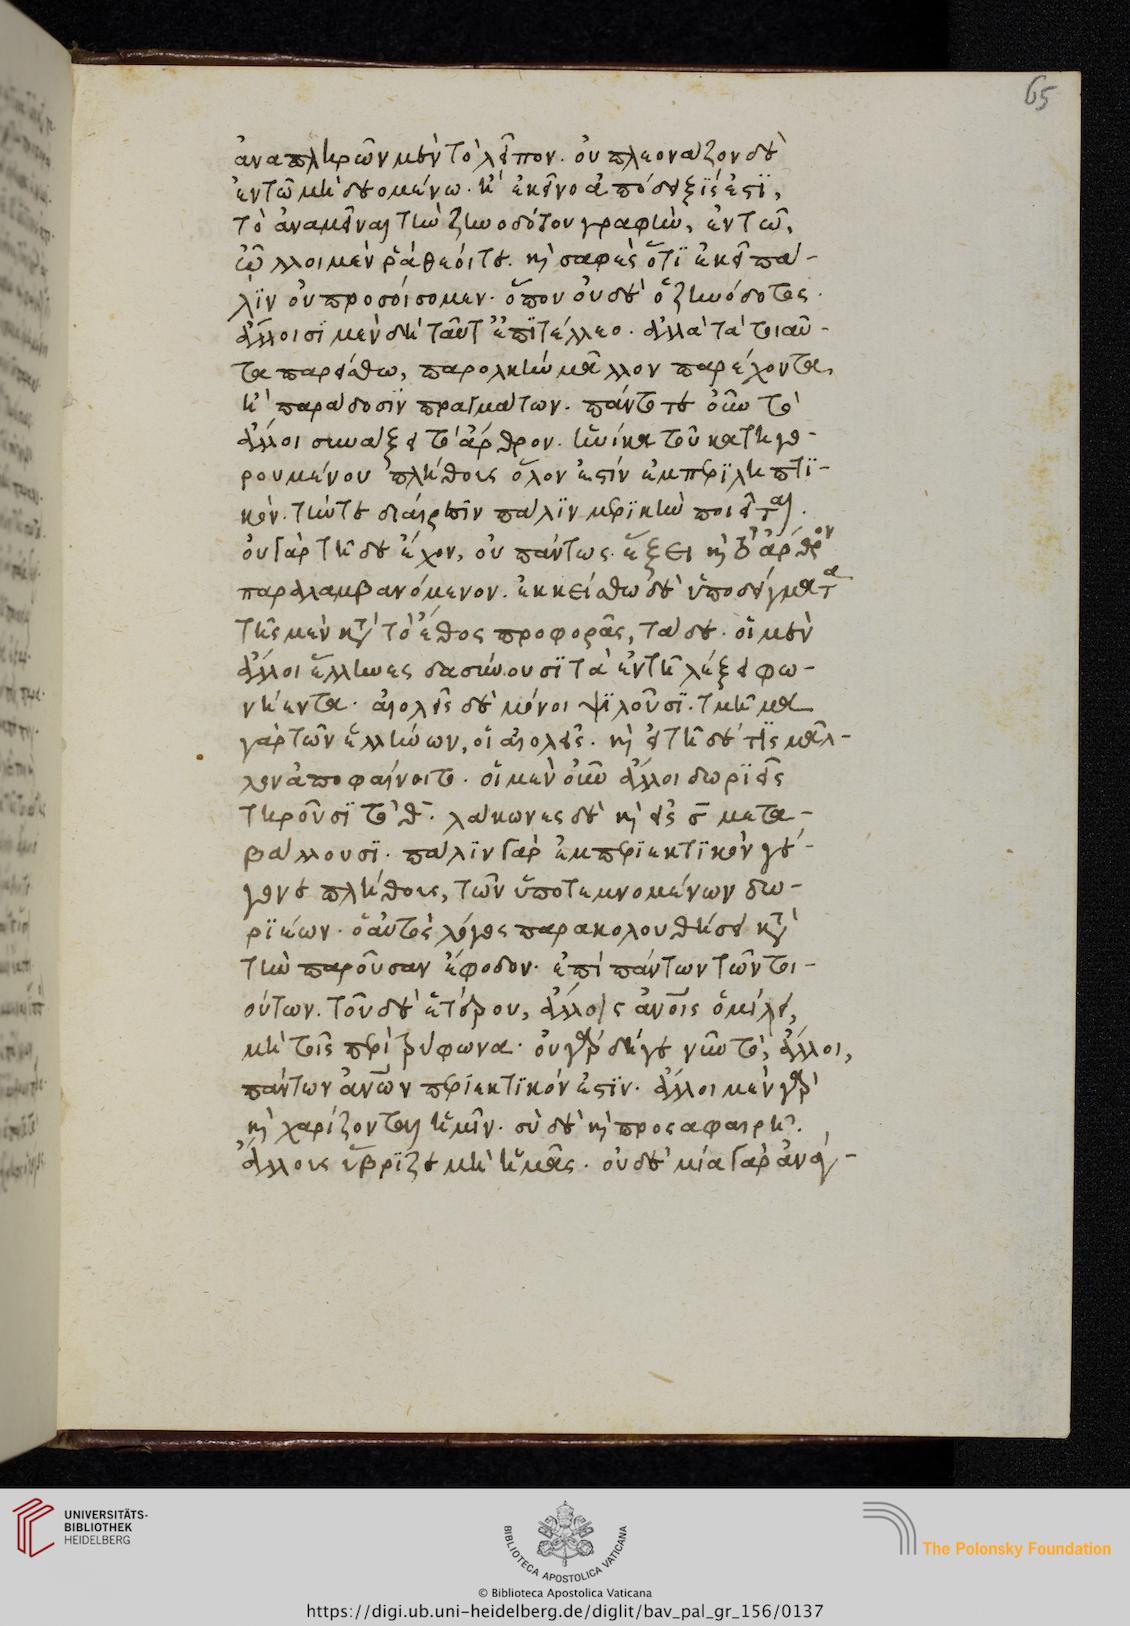 65
ἀναπληρῶν μὲν τὸ λεῖπον. οὐ πλεονάζον δὲ
ἐν τῶ μὴ δεομένω. κἀκεῖνο ἀπόδειξίς ἐστι,
τὸ ἀναμεῖναι τὴν ζηνοδότου γραφὴν, ἐν τῶ,
ὦλλοι μέν ῥα θεόι τε. καὶ σαφὲς ὅτι ἐκεῖ πά-
λιν οὐ προσοίσομεν. ὅπου οὐδὲ ὁ ζηνόδοτος.
ἄλλοισι μὲν δὴ ταῦτ' ἐπιτέλλεο. ἀλλὰ τὰ τοιαῦ-
τα παρείσθω, παρολκὴν μᾶλλον παρέχοντα,
ἢ παράδοσιν πραγμάτων. πάντοτε οὖν τὸ
ἄλλοι συνάξει τὸ ἄρθρον. ἡνίκα τοῦ κατηγο-
ρουμένου πλήθους ὅλον ἐστὶν ἐμπεριληπτι-
κόν. τήν τε διαίρεσιν πάλιν μερικὴν ποιεῖται.
οὐ γὰρ τῆδε ἔχον, οὐ πάντως ἕξει καὶ τὸ ἄρθρον
παραλαμβανόμενον. ἐκκείσθω δὲ ὑποδείγματα
τῆς μὲν κατὰ τὸ ἔθος προφορᾶς, τάδε. οἱ μὲν
ἄλλοι ἕλληνες δασύνουσι τὰ ἐν τῆ λέξει φω-
νήεντα. αἰολεῖς δὲ μόνοι ψιλοῦσι. τμῆμα
γὰρ τῶν ἑλλήνων, οἱ αἰολεῖς. καὶ εἰ τῆδέ τις μᾶλ-
λον ἀποφαίνοιτο. οἱ μὲν οὖν ἄλλοι δωριεῖς
τηροῦσι τὸ θ. λάκωνες δὲ καὶ εἰς σ μετα-
βάλλουσι. πάλιν γὰρ ἐμπεριεκτικὸν γέ-
γονε πλήθους, τῶν ὑποτεμνομένων δω-
ριέων. ὁ αὐτὸς λόγος παρακολουθήσει κατὰ
τὴν παροῦσαν ἔφοδον. ἐπὶ πάντων τῶν τοι-
ούτων. τοῦ δὲ ἑτέρου, ἄλλοις ἀνοις ὁμίλει,
μὴ τοῖς περὶ τρύφωνα. οὐ γὰρ δήγε νῦν τὸ, ἄλλοι,
πάντων ἀνων περιεκτικόν ἐστιν. ἄλλοι μὲν γὰρ
καὶ χαρίζονται ἡμῖν. σὺ δὲ καὶ προσαφαιρῆ.
ἄλλους ὕβριζε μὴ ἡμᾶς. οὐδὲ μία γὰρ ἀνάγ-
UNIVERSITÄTS-
BIBLIOTHEK
HEIDELBERG
BIBLIOTECA APOSTOLICA VATICANA
The Polonsky Foundation
© Biblioteca Apostolica Vaticana
https://digi.ub.uni-heidelberg.de/diglit/bav_pal_gr_156/0137